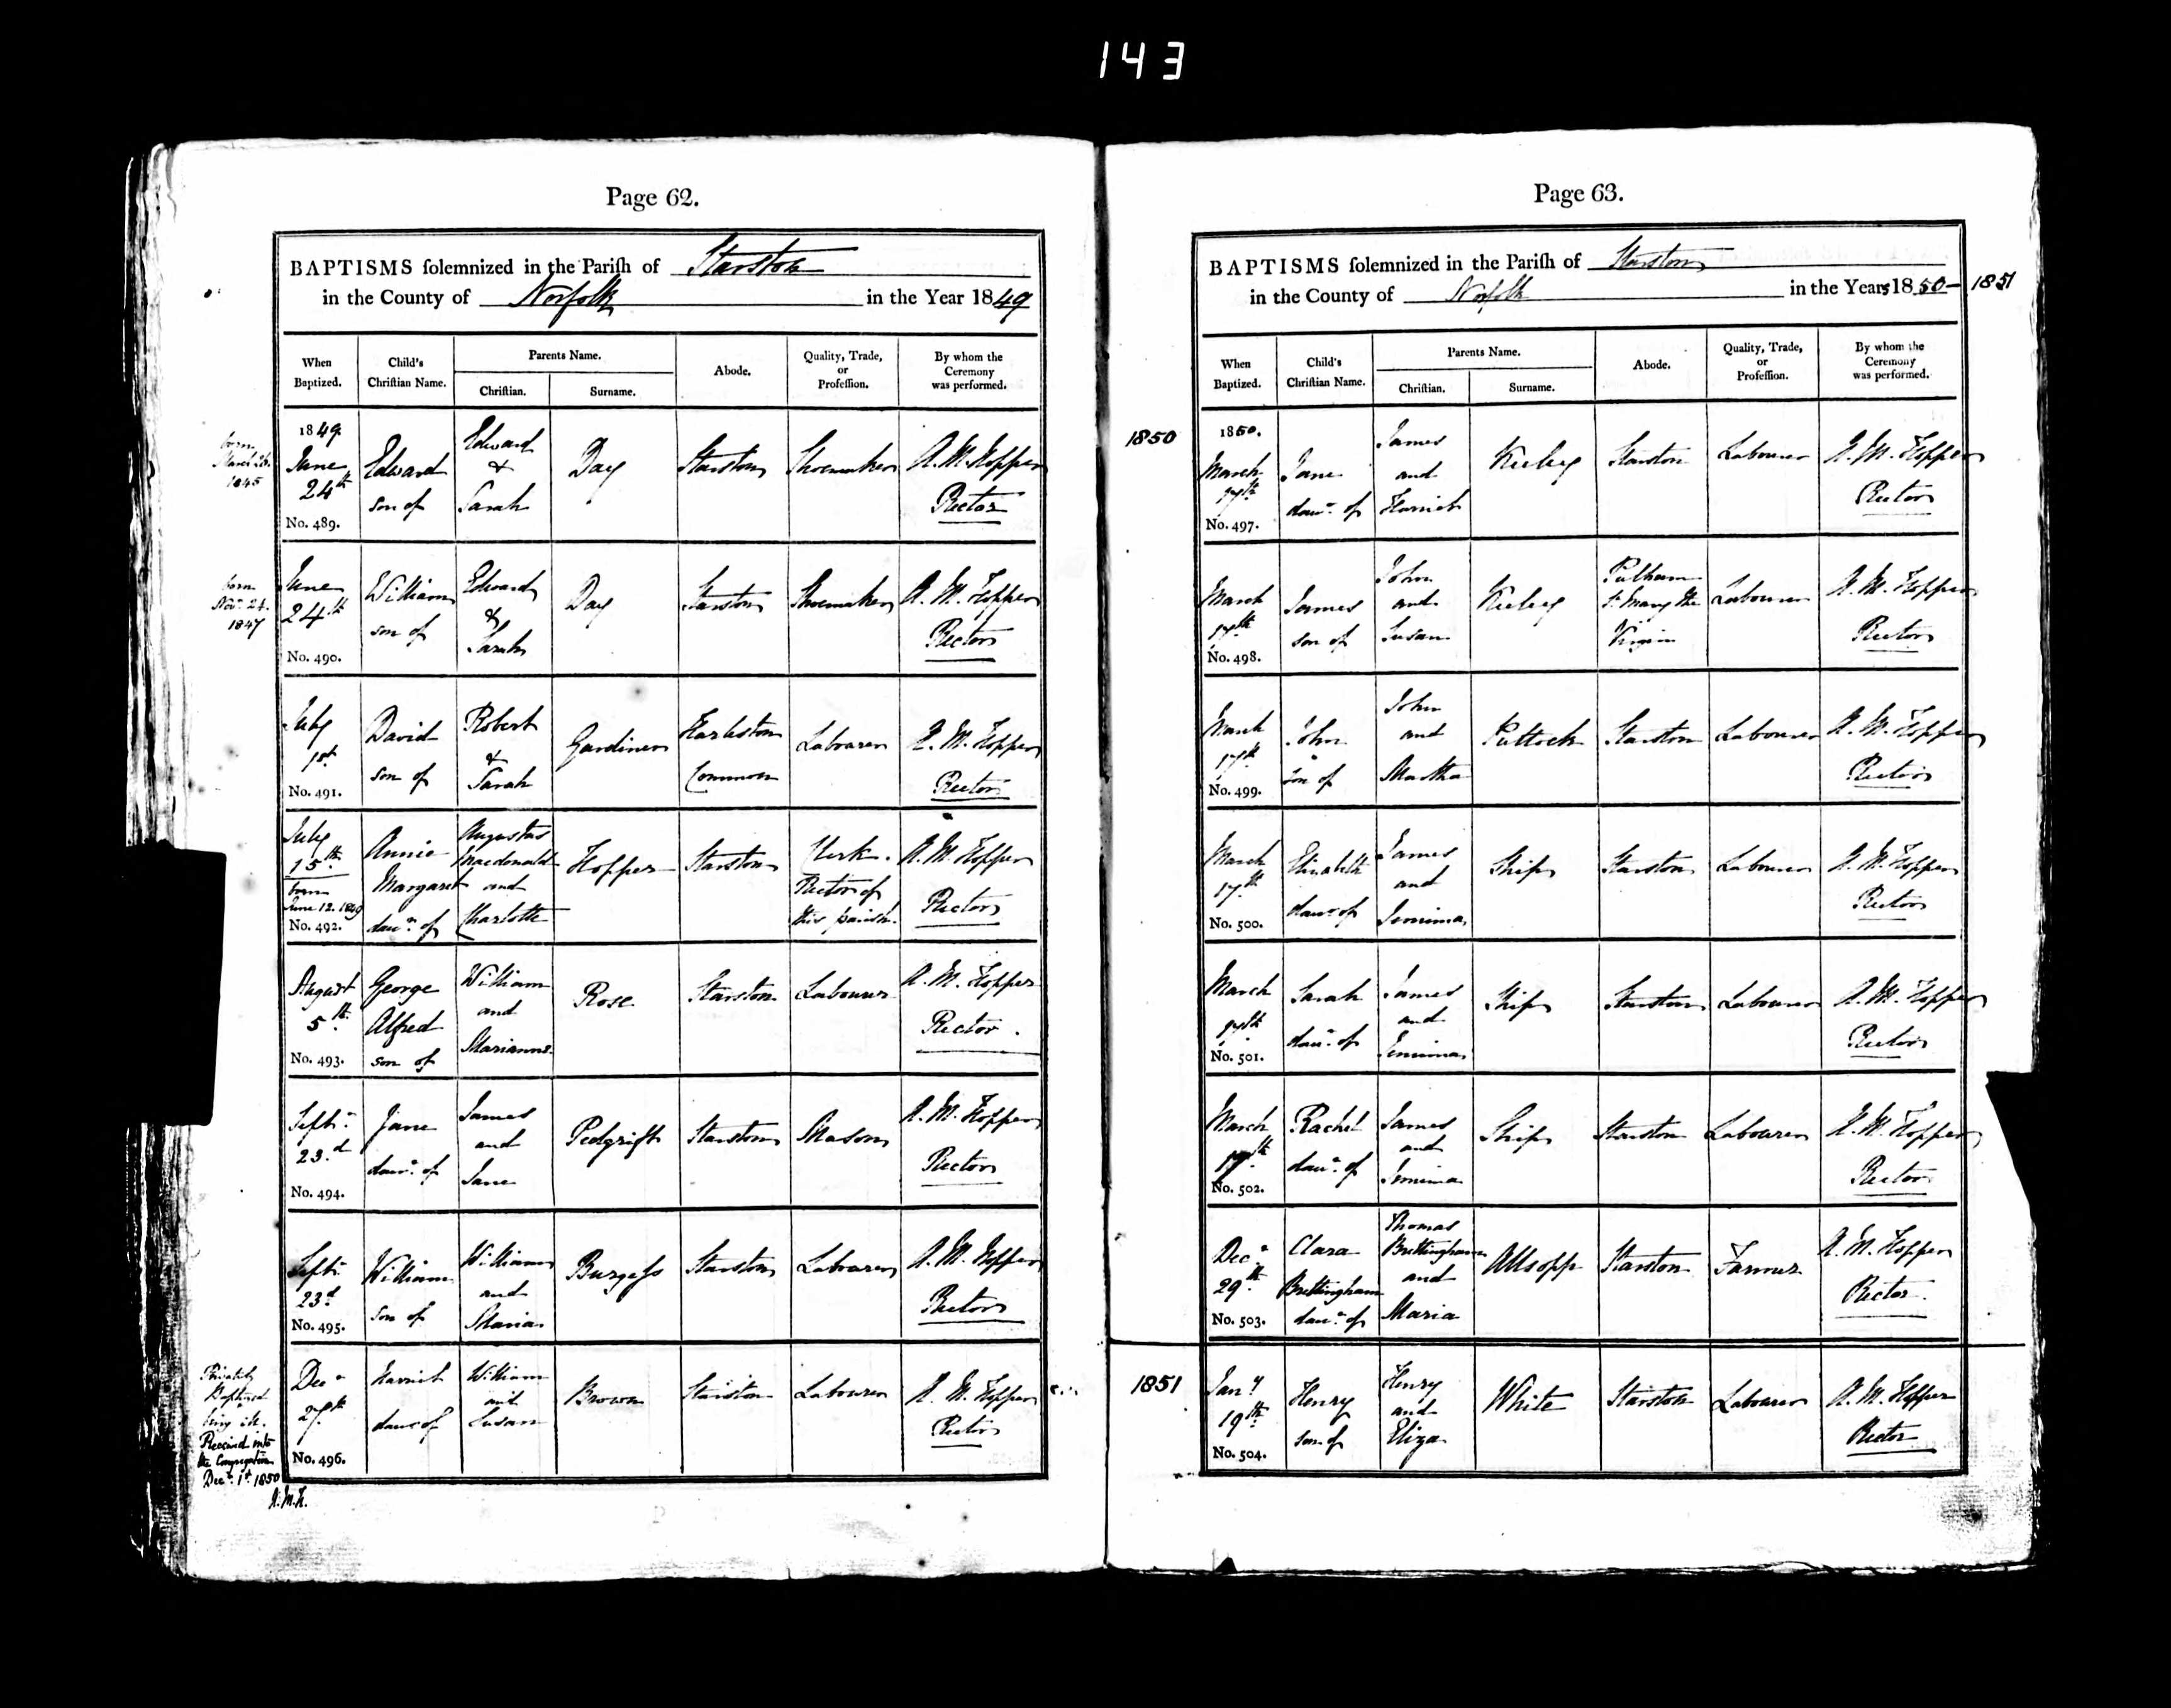 143
Page 62.
BAPTISMS solemnized in the Parish of Starston
in the County of Norfolk in the Year 1849
When Baptized.
Child's Christian Name.
Parents Name.
Christian.
Surname.
Abode.
Quality, Trade, or Profession.
By whom the Ceremony was performed.
born March 26. 1845
1849 June 24th No. 489.
Edward son of
Edward & Sarah
Day
Starston
Shoemaker
A. M. Hopper Rector
born Novr. 24. 1847
June 24th No. 490.
William son of
Edward & Sarah
Day
Starston
Shoemaker
A. M. Hopper Rector
July 1st No. 491.
David son of
Robert & Sarah
Gardiner
Harleston Common
Labourer
A. M. Hopper Rector
July 15th born June 12. 1849 No. 492.
Annie Margaret daur. of
Augustus Macdonald and Charlotte
Hopper
Starston
Clerk. Rector of this parish.
A. M. Hopper Rector
August 5th No. 493.
George Alfred son of
William and Marianne
Rose
Starston
Labourer
A. M. Hopper Rector.
Septr. 23.d No. 494.
Jane daur. of
James and Jane
Pedgrift
Starston
Mason
A. M. Hopper Rector
Septr. 23d No. 495.
William son of
William and Maria
Burgess
Starston
Labourer
A. M. Hopper Rector
Privately Baptized being ill. Received into the Congregation Decr. 1st 1850 A. M. H.
Decr 27th No. 496.
Harriet daur of
William and Susan
Brown
Starston
Labourer
A. M. Hopper Rector
Page 63.
BAPTISMS solemnized in the Parish of Starston
in the County of Norfolk in the Years 1850 - 1851
When Baptized.
Child's Christian Name.
Parents Name.
Christian.
Surname.
Abode.
Quality, Trade, or Profession.
By whom the Ceremony was performed.
1850
1850. March 17th No. 497.
Jane daur. of
James and Harriet
Starston
Labourer
A. M. Hopper Rector
March 17th No. 498.
James son of
John and Susan
Pulham St. Mary the Virgin
Labourer
A. M. Hopper Rector
March 17th No. 499.
John son of
John and Martha
Puttock
Starston
Labourer
A. M. Hopper Rector
March 17th No. 500.
Elizabeth daur of
James and Jemima
Skip
Starston
Labourer
A. M. Hopper Rector
March 17th No. 501.
Sarah daur. of
James and Jemima
Skip
Starston
Labourer
A. M. Hopper Rector
March 17th No. 502.
Rachel daur. of
James and Jemima
Skip
Starston
Labourer
A. M. Hopper Rector
Decr. 29th No. 503.
Clara Brettingham daur. of
Thomas Brettingham and Maria
Allsopp
Starston
Farmer
A. M. Hopper Rector.
1851
Jany 19th No. 504.
Henry son of
Henry and Eliza
White
Starston
Labourer
A. M. Hopper Rector